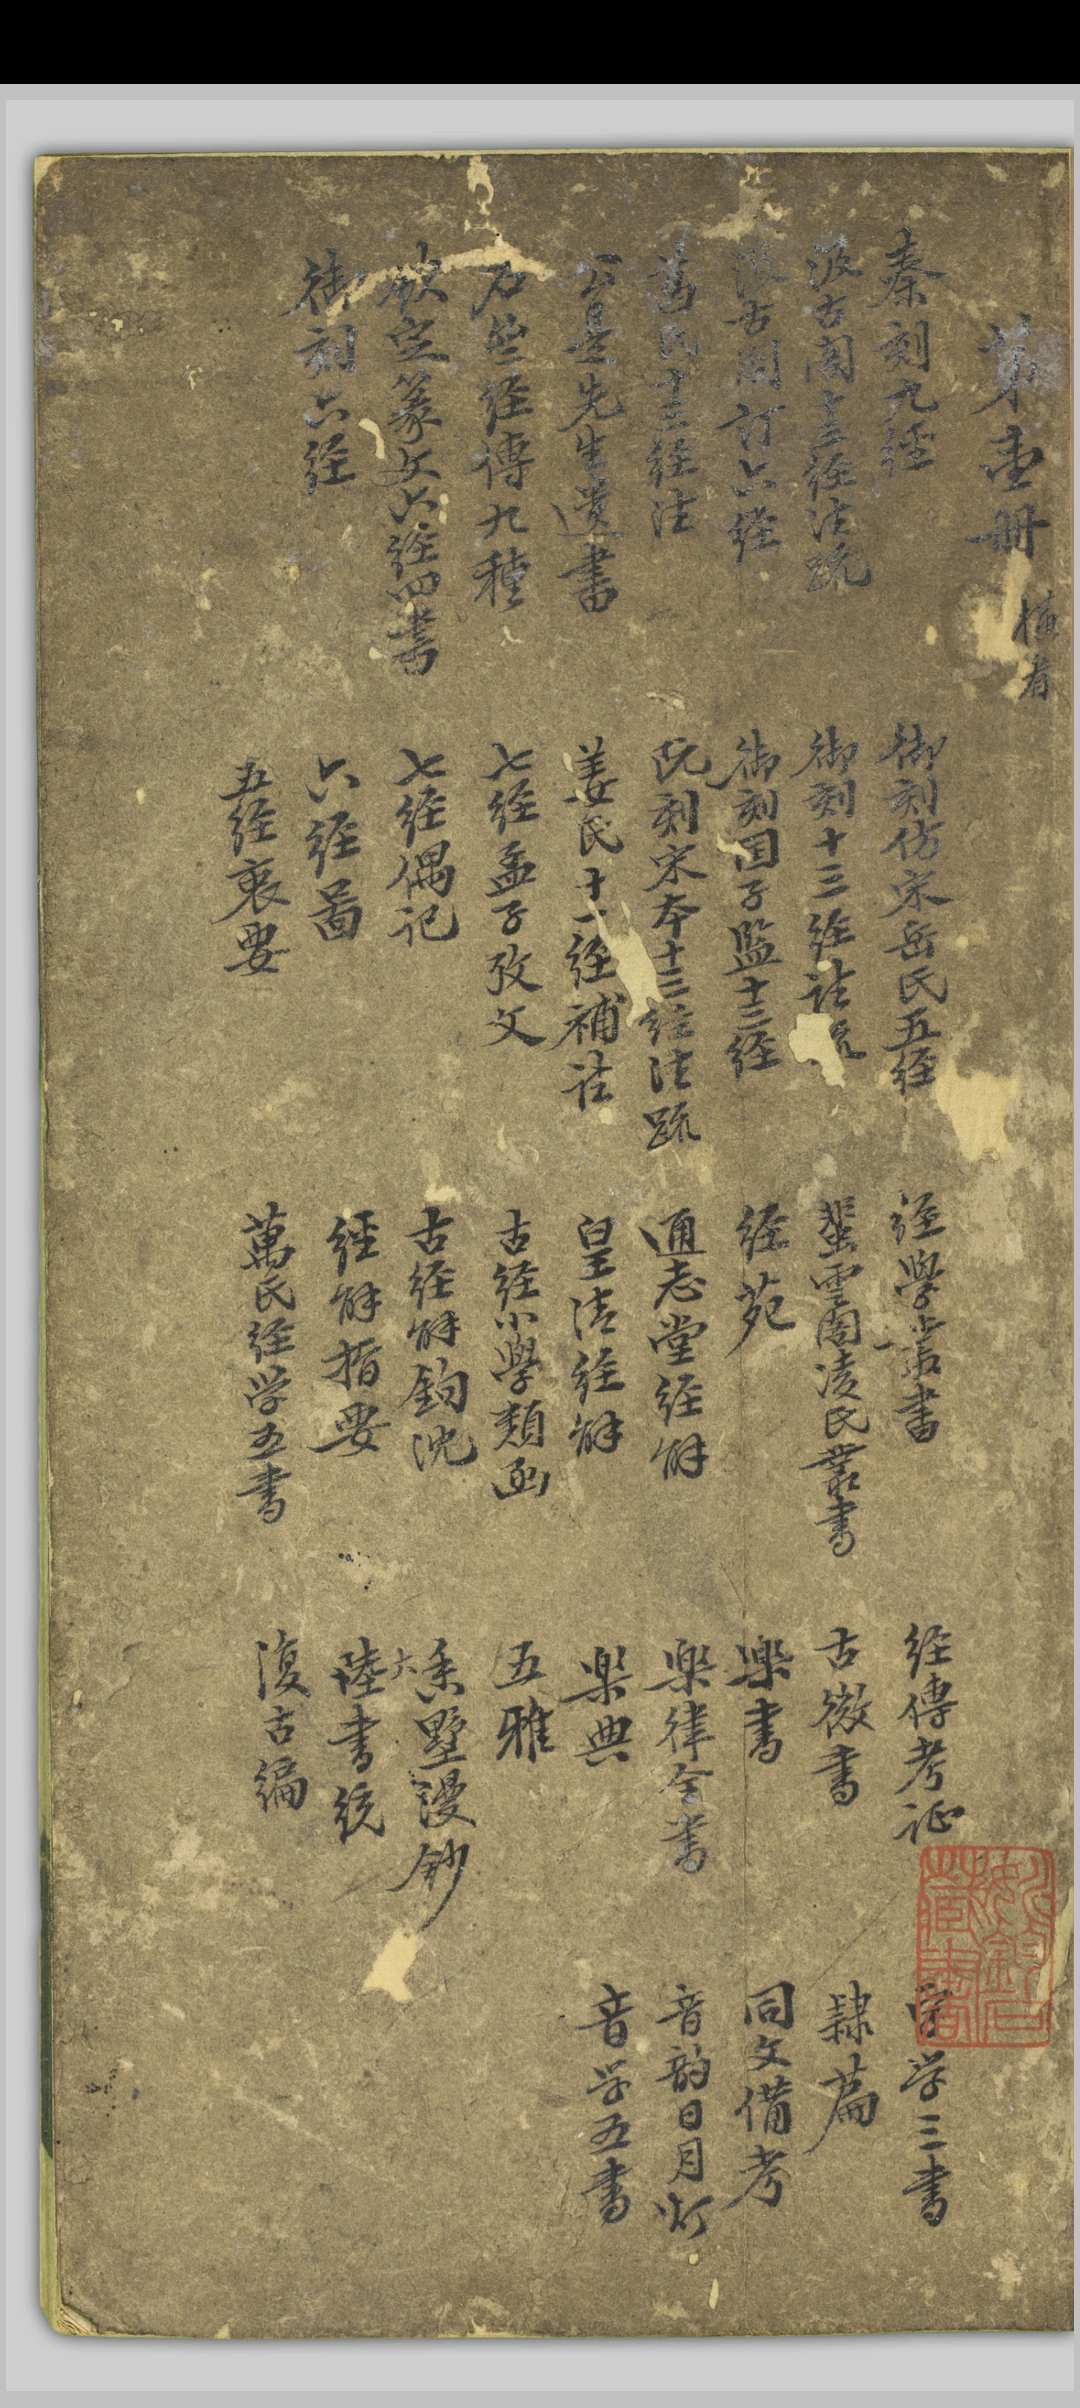 第壹册
橫看
秦刻九經
汲古閣十三經注疏
汲古閣訂六經
萬氏十三經注
公是先生遺書
石齋經傳九種
欽定篆文六經四書
御刻六經
御刻仿宋岳氏五經
御刻十三經注疏
御刻国子監十三經
阮刻宋本十三經注疏
姜氏十一經補注
七經孟子攷文
七經偶記
六經圖
五經衷要
經學叢書
蜚雲閣凌氏叢書
經苑
通志堂經解
皇清經解
古經小學類函
古經解鉤沈
經解指要
萬氏經学五書
經傳考证
古微書
樂書
樂律全書
樂典
五雅
香墅漫鈔
六書統
復古編
字学三書
隸篇
同文備考
音韵日月灯
音学五書